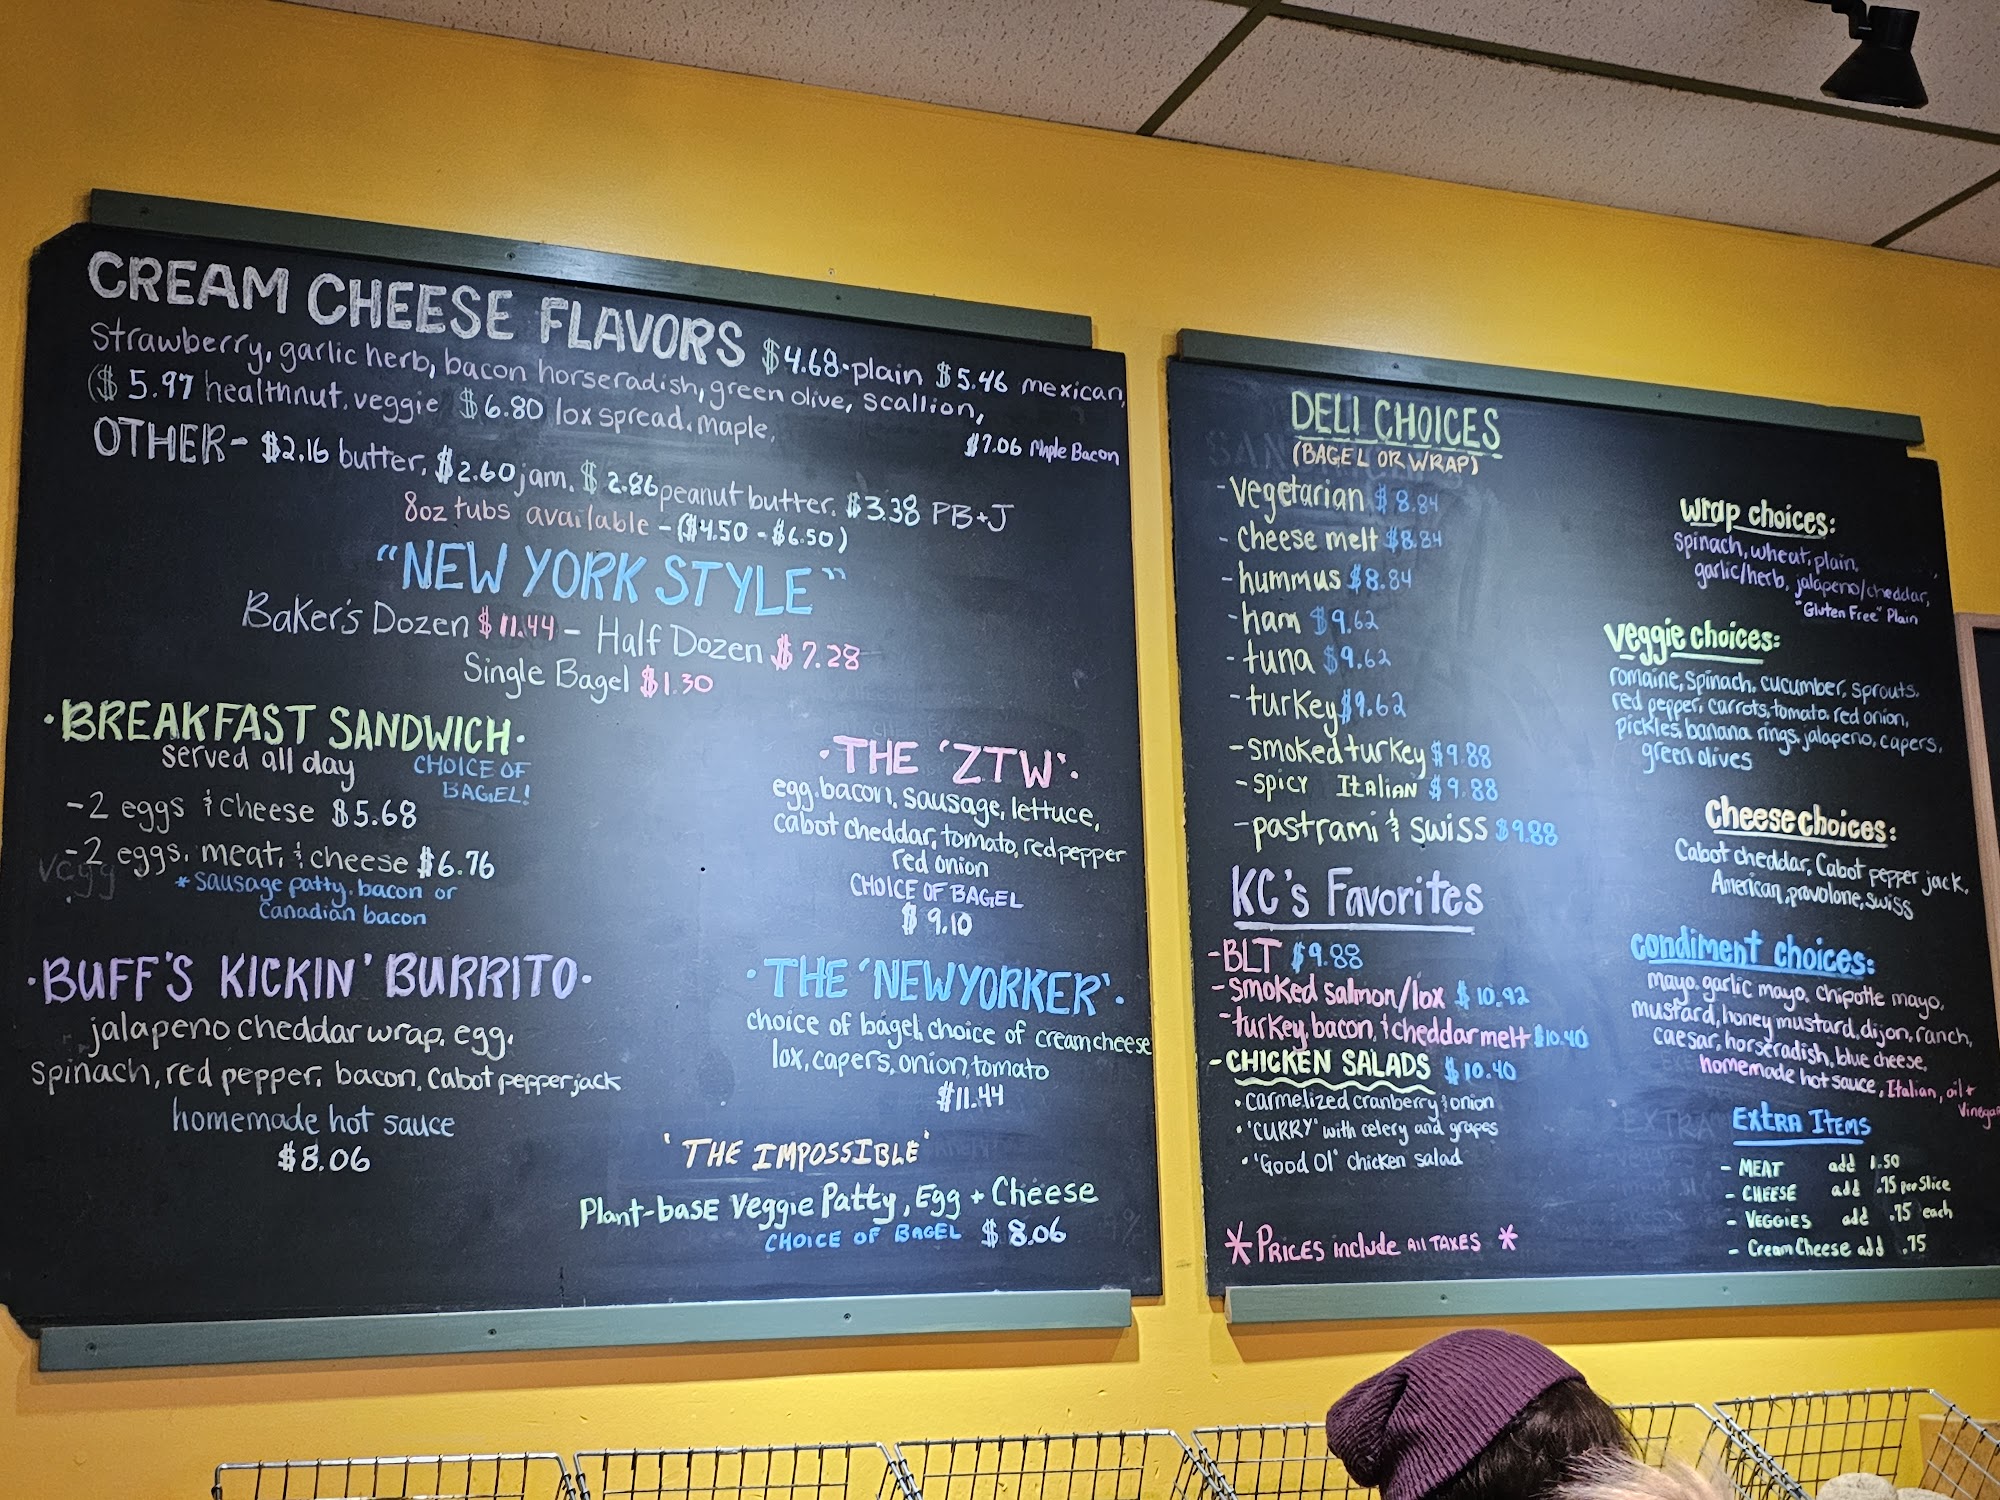 CREAM CHEESE FLAVORS $4.68-plain $5.46 mexican,
strawberry, garlic herb, bacon horseradish, green olive, scallion,
($5.97 healthnut, veggie $6.80 lox spread, maple,
$7.06 Maple Bacon
OTHER- $2.16 butter, $2.60 jam, $2.86 peanut butter, $3.38 PB+J
8oz tubs available - ($4.50 - $6.50)
"NEW YORK STYLE"
Baker's Dozen $11.44 - Half Dozen $7.28
Single Bagel $1.30
·BREAKFAST SANDWICH·
served all day
CHOICE OF
BAGEL!
-2 eggs & cheese $5.68
-2 eggs, meat, & cheese $6.76
*sausage patty, bacon or
Canadian bacon
·BUFF'S KICKIN' BURRITO·
jalapeno cheddar wrap, egg,
spinach, red pepper, bacon, Cabot pepperjack
homemade hot sauce
$8.06
·THE 'ZTW'·
egg, bacon, sausage, lettuce,
cabot cheddar, tomato, red pepper
red onion
CHOICE OF BAGEL
$9.10
·THE 'NEWYORKER'·
choice of bagel, choice of creamcheese
lox, capers, onion, tomato
$11.44
'THE IMPOSSIBLE'
Plant-base Veggie Patty, Egg + Cheese
CHOICE OF BAGEL $8.06
DELI CHOICES
(BAGEL OR WRAP)
-vegetarian $8.84
-cheese melt $8.84
-hummus $8.84
-ham $9.62
-tuna $9.62
-turkey $9.62
-smoked turkey $9.88
-spicy Italian $9.88
-pastrami & swiss $9.88
KC's Favorites
-BLT $9.88
-smoked salmon/lox $10.92
-turkey, bacon, & cheddar melt $10.40
-CHICKEN SALADS $10.40
·carmelized cranberry & onion
·'CURRY' with celery and grapes
·'Good Ol' chicken salad
*PRICES include All TAXES *
wrap choices:
spinach, wheat, plain,
garlic/herb, jalapeno/cheddar,
"Gluten Free" Plain
veggie choices:
romaine, spinach, cucumber, sprouts,
red pepper, carrots, tomato, red onion,
pickles, banana rings, jalapeno, capers,
green olives
Cheese choices:
Cabot cheddar, Cabot pepper jack,
American, provolone, swiss
condiment choices:
mayo, garlic mayo, chipotle mayo,
mustard, honey mustard, dijon, ranch,
caesar, horseradish, blue cheese,
homemade hot sauce, Italian, oil +
Vinegar
EXTRA ITEMS
- MEAT add 1.50
- CHEESE add .75 per slice
- VEGGIES add .75 each
- Cream Cheese add .75